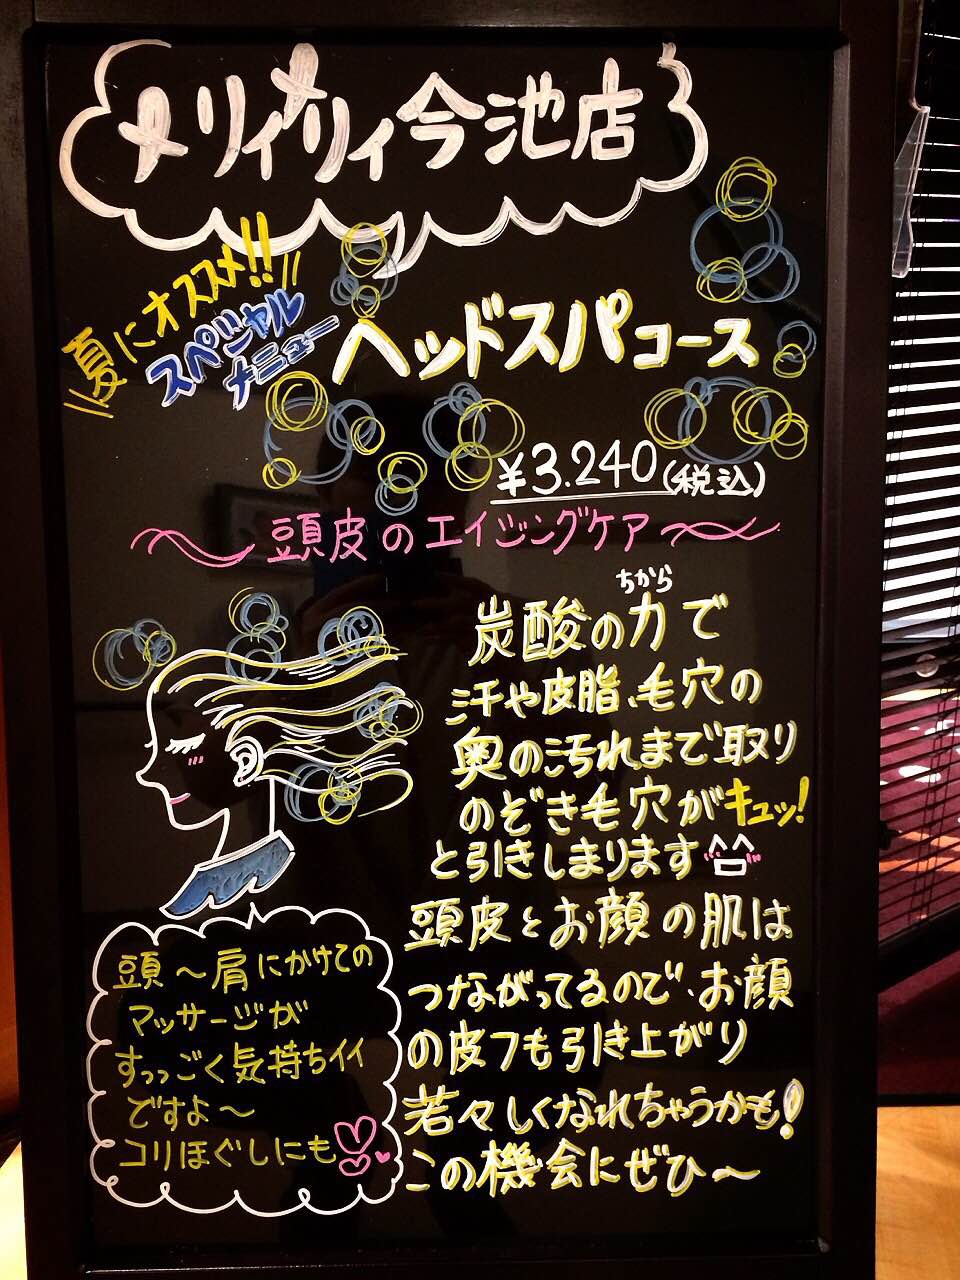 メリィメリィ今池店
夏にオススメ!!
スペシャル
メニュー
ヘッドスパコース
¥3.240(税込)
頭皮のエイジングケア
ちから
炭酸の力で
汗や皮脂、毛穴の
奥の汚れまで取り
のぞき毛穴がキュッ!
と引きしまります
頭皮とお顔の肌は
つながってるので、お顔
の皮フも引き上がり
若々しくなれちゃうかも!
この機会にぜひ〜
頭〜肩にかけての
マッサージが
すっっごく気持ちイイ
ですよ〜
コリほぐしにも